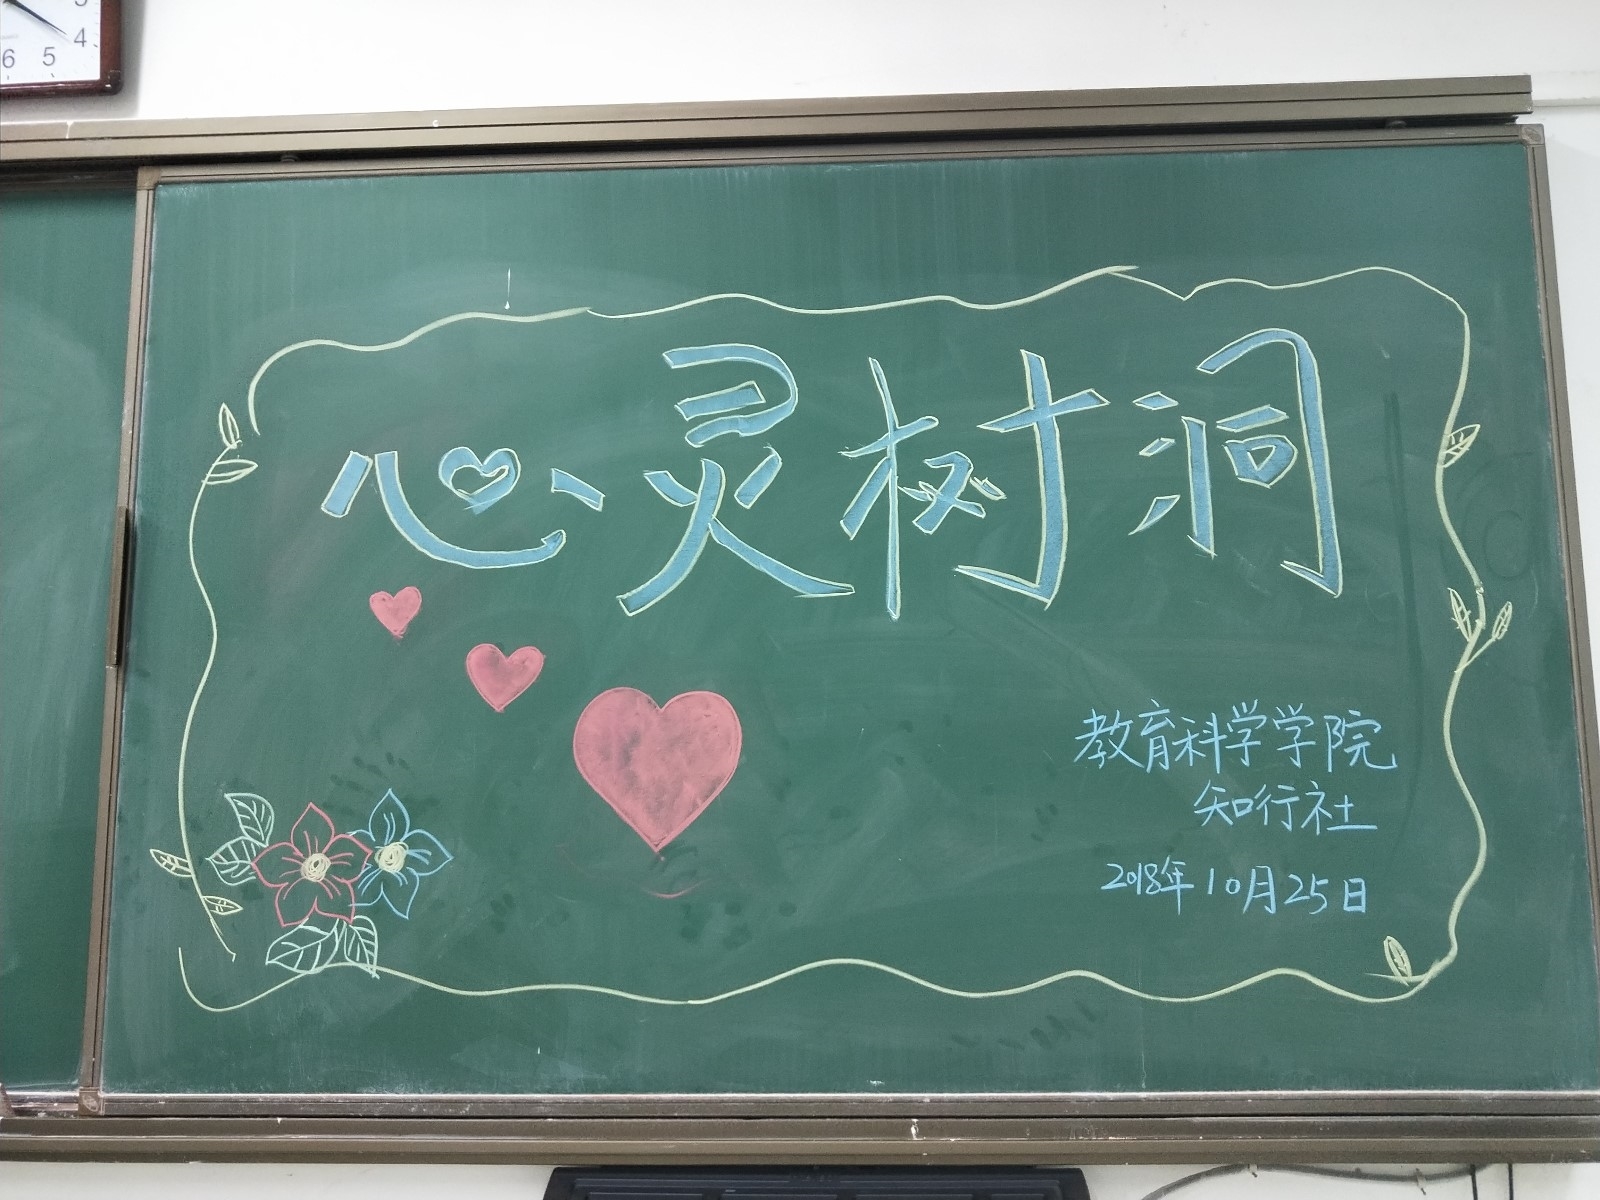 3
4
5
6
心灵树洞
教育科学学院
知行社
2018年10月25日